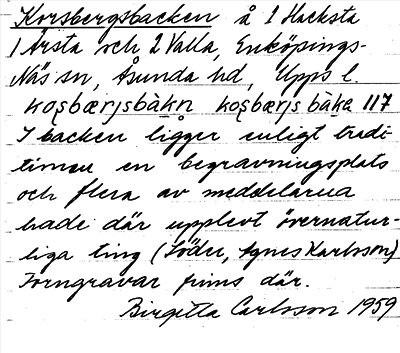 Korsbergsbacken å 1 Hacksta
1 Årsta och 2 Valla, Enköpings-
Näs sn, Åsunda hd, Upps l.
koʂbærjsbàkn koʂbærjs bàka 117
I backen ligger enligt tradi-
tionen en begravningsplats
och flera av meddelarna
hade där upplevt övernatur-
liga ting (Söder, Agnes Karlsson)
Forngravar finns där.
Birgitta Carlsson 1959